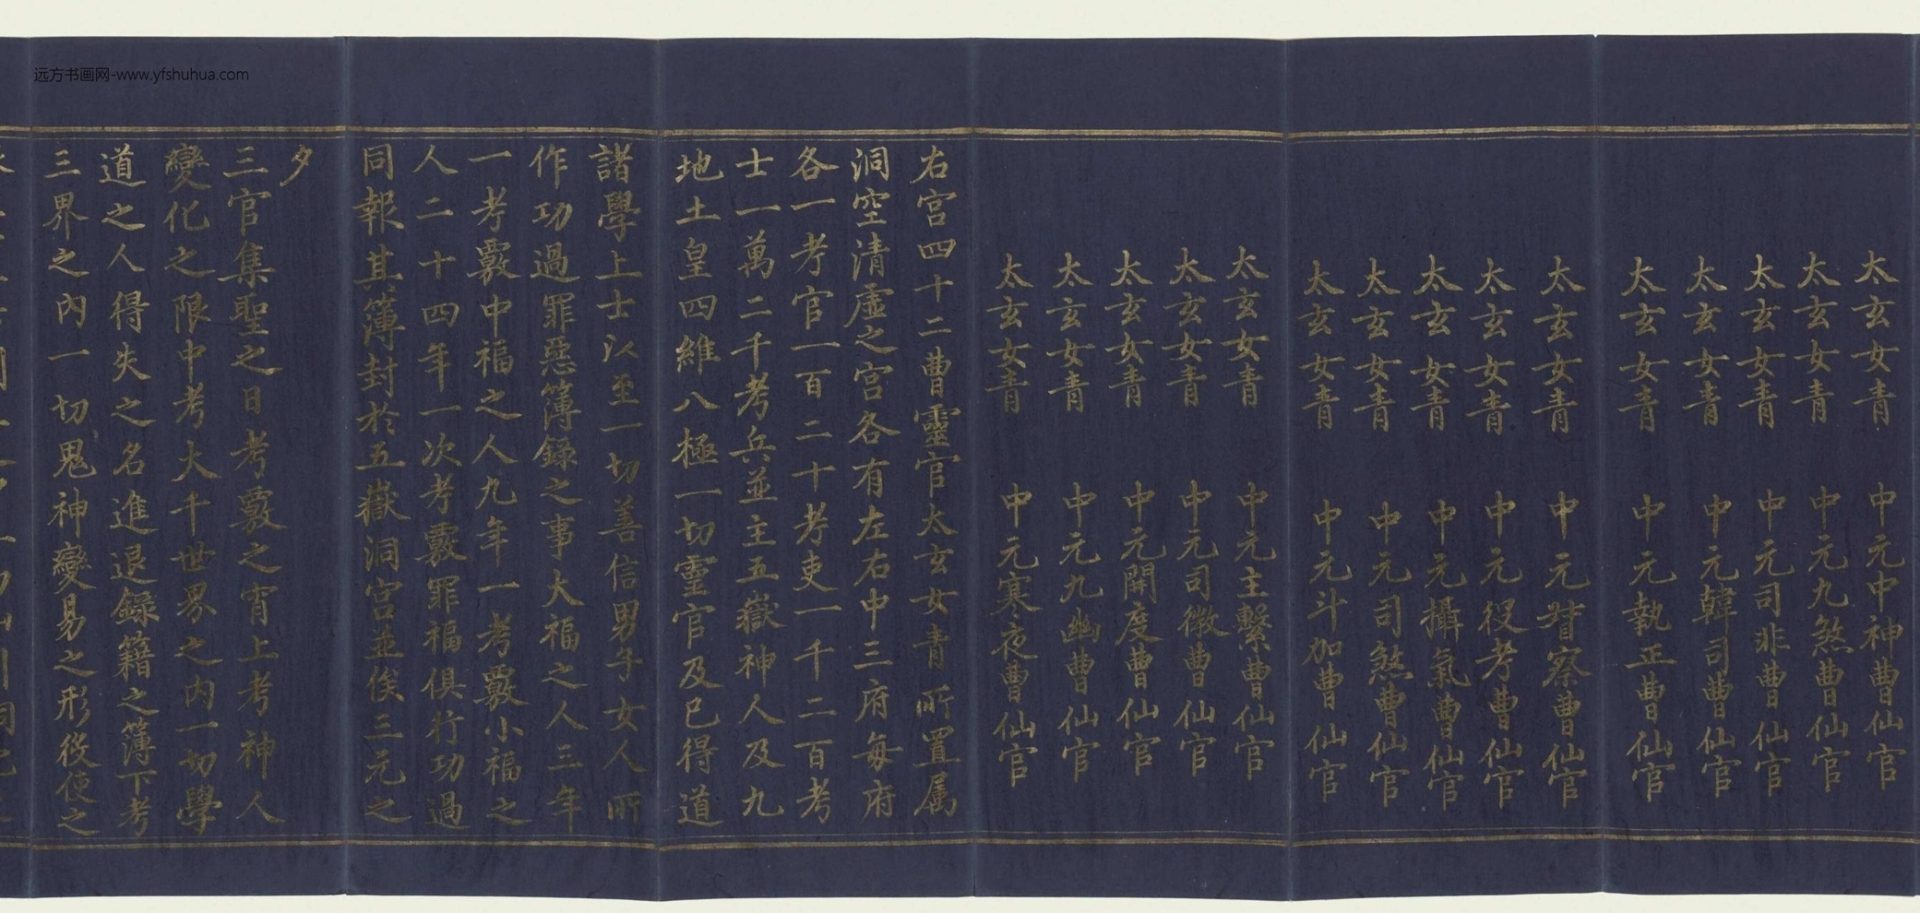 远方书画网-www.yfshuhua.com
太玄女青 中元中神曹仙官
太玄女青 中元九煞曹仙官
太玄女青 中元司非曹仙官
太玄女青 中元韓司曹仙官
太玄女青 中元執正曹仙官
太玄女青 中元督察曹仙官
太玄女青 中元役考曹仙官
太玄女青 中元攝氣曹仙官
太玄女青 中元司煞曹仙官
太玄女青 中元斗加曹仙官
太玄女青 中元主繫曹仙官
太玄女青 中元司徼曹仙官
太玄女青 中元開度曹仙官
太玄女青 中元九幽曹仙官
太玄女青 中元寒夜曹仙官
右宫四十二曹靈官太玄女青所置属
洞空清虛之宫各有左右中三府每府
各一考官一百二十考吏一千二百考
士一萬二千考兵並主五嶽神人及九
地土皇四維八極一切靈官及已得道
諸學上士以至一切善信男子女人所
作功過罪惡簿錄之事大福之人三年
一考覈中福之人九年一考覈小福之
人二十四年一次考覈罪福俱行功過
同報其簿封於五嶽洞宫並俟三元之
夕
三官集聖之日考覈之宵上考神人
變化之限中考大千世界之内一切學
道之人得失之名進退錄籍之簿下考
三界之內一切鬼神變易之形役使之